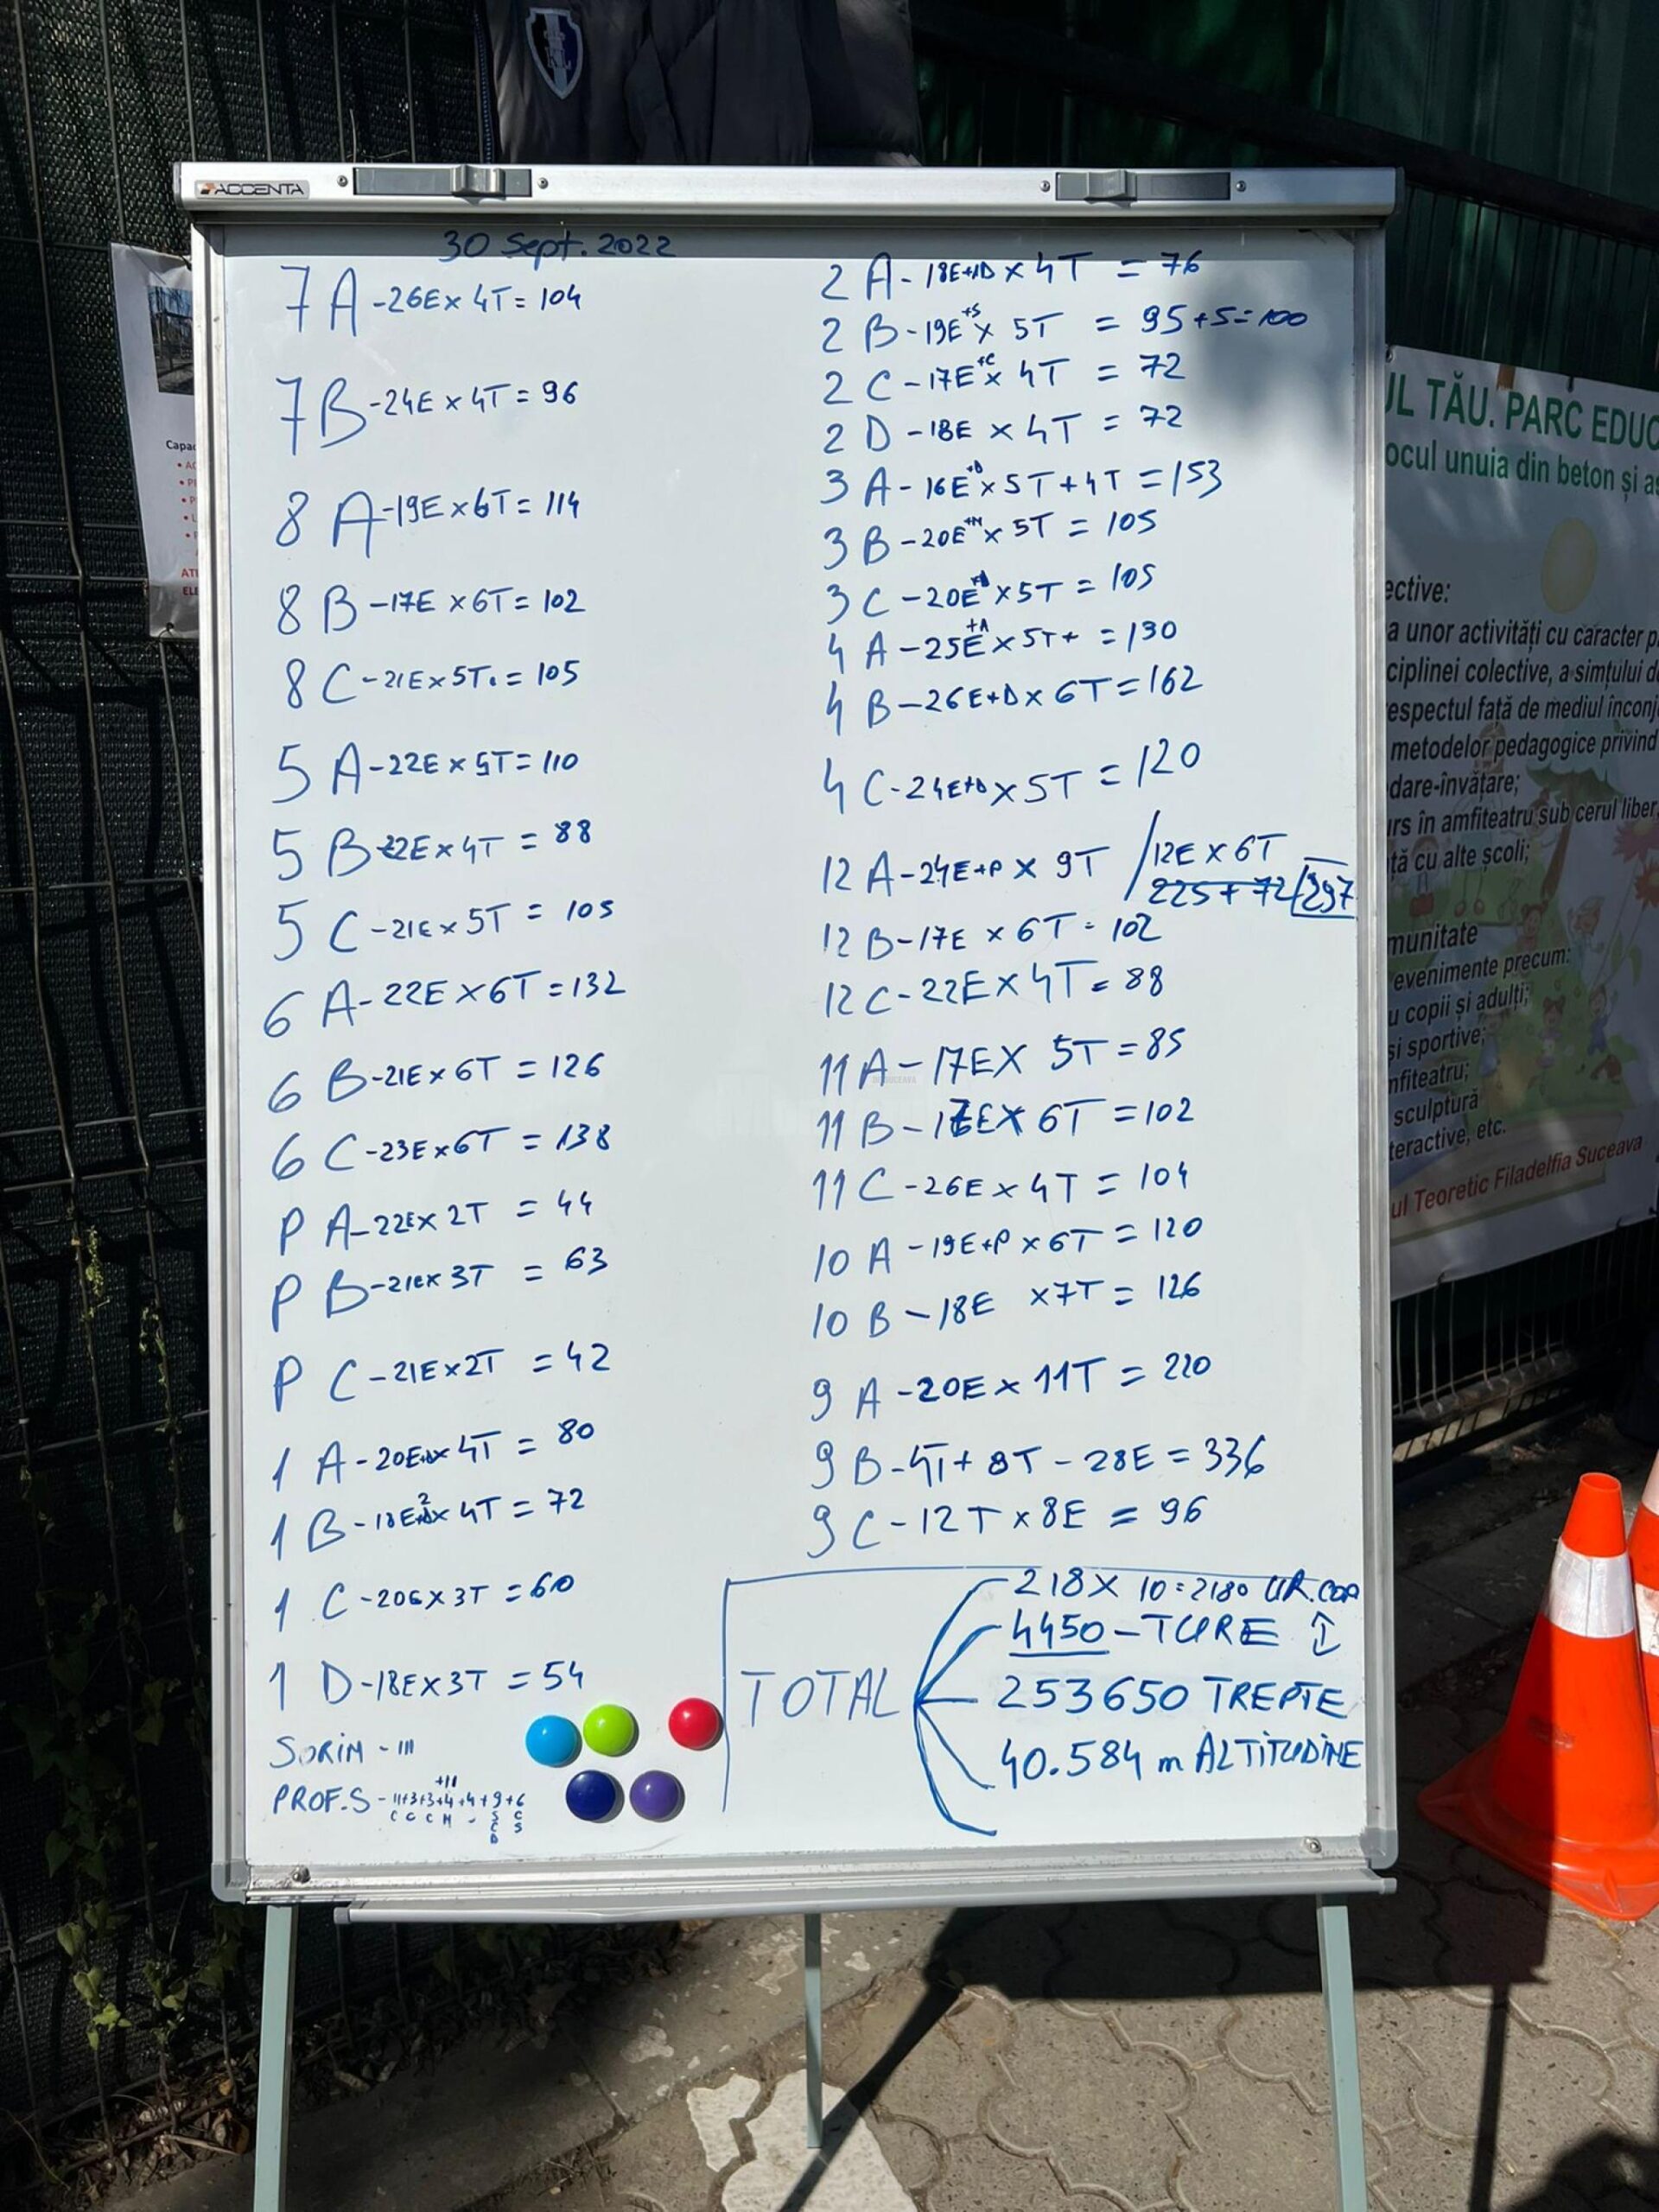 ACCENTA
30 Sept. 2022
7 A - 26E x 4T = 104
7 B - 24E x 4T = 96
8 A - 19E x 6T = 114
8 B - 17E x 6T = 102
8 C - 21E x 5T. = 105
5 A - 22E x 5T = 110
5 B - 22E x 4T = 88
5 C - 21E x 5T = 105
6 A - 22E x 6T = 132
6 B - 21E x 6T = 126
6 C - 23E x 6T = 138
P A - 22E x 2T = 44
P B - 21E x 3T = 63
P C - 21E x 2T = 42
1 A - 20E x 4T = 80
1 B - 18E x 4T = 72
1 C - 20E x 3T = 60
1 D - 18E x 3T = 54
SORIN - III
PROF.S - 11+3+3+4+4+9+6
+11
C C C M - S C
C S
D
2 A - 18E+1D x 4T = 76
2 B - 19E+S x 5T = 95+5=100
2 C - 17E+C x 4T = 72
2 D - 18E x 4T = 72
3 A - 16E+D x 5T + 4T = 153
3 B - 20E+M x 5T = 105
3 C - 20E x 5T = 105
4 A - 25E+A x 5T+ = 130
4 B - 26E+D x 6T = 162
4 C - 24E+D x 5T = 120
12 A - 24E+P x 9T / 12E x 6T
225 + 72 297
12 B - 17E x 6T = 102
12 C - 22E x 4T = 88
11 A - 17E X 5T = 85
11 B - 17E X 6T = 102
11 C - 26E x 4T = 104
10 A - 19E+P x 6T = 120
10 B - 18E x 7T = 126
9 A - 20E x 11T = 220
9 B - 4T + 8T - 28E = 336
9 C - 12T x 8E = 96
TOTAL
218 X 10 = 2180 UR.COB
4450 - TURE ↕
253650 TREPTE
40.584 m ALTITUDINE
Capac
UL TĂU. PARC EDUC
ocul unuia din beton și as
ective:
a unor activități cu caracter p
ciplinei colective, a simțului d
espectul față de mediul înconj
metodelor pedagogice privind
dare-învățare;
urs în amfiteatru sub cerul liber
tă cu alte școli;
munitate
evenimente precum:
u copii și adulți;
si sportive;
mfiteatru;
sculptură
teractive, etc.
ul Teoretic Filadelfia Suceava